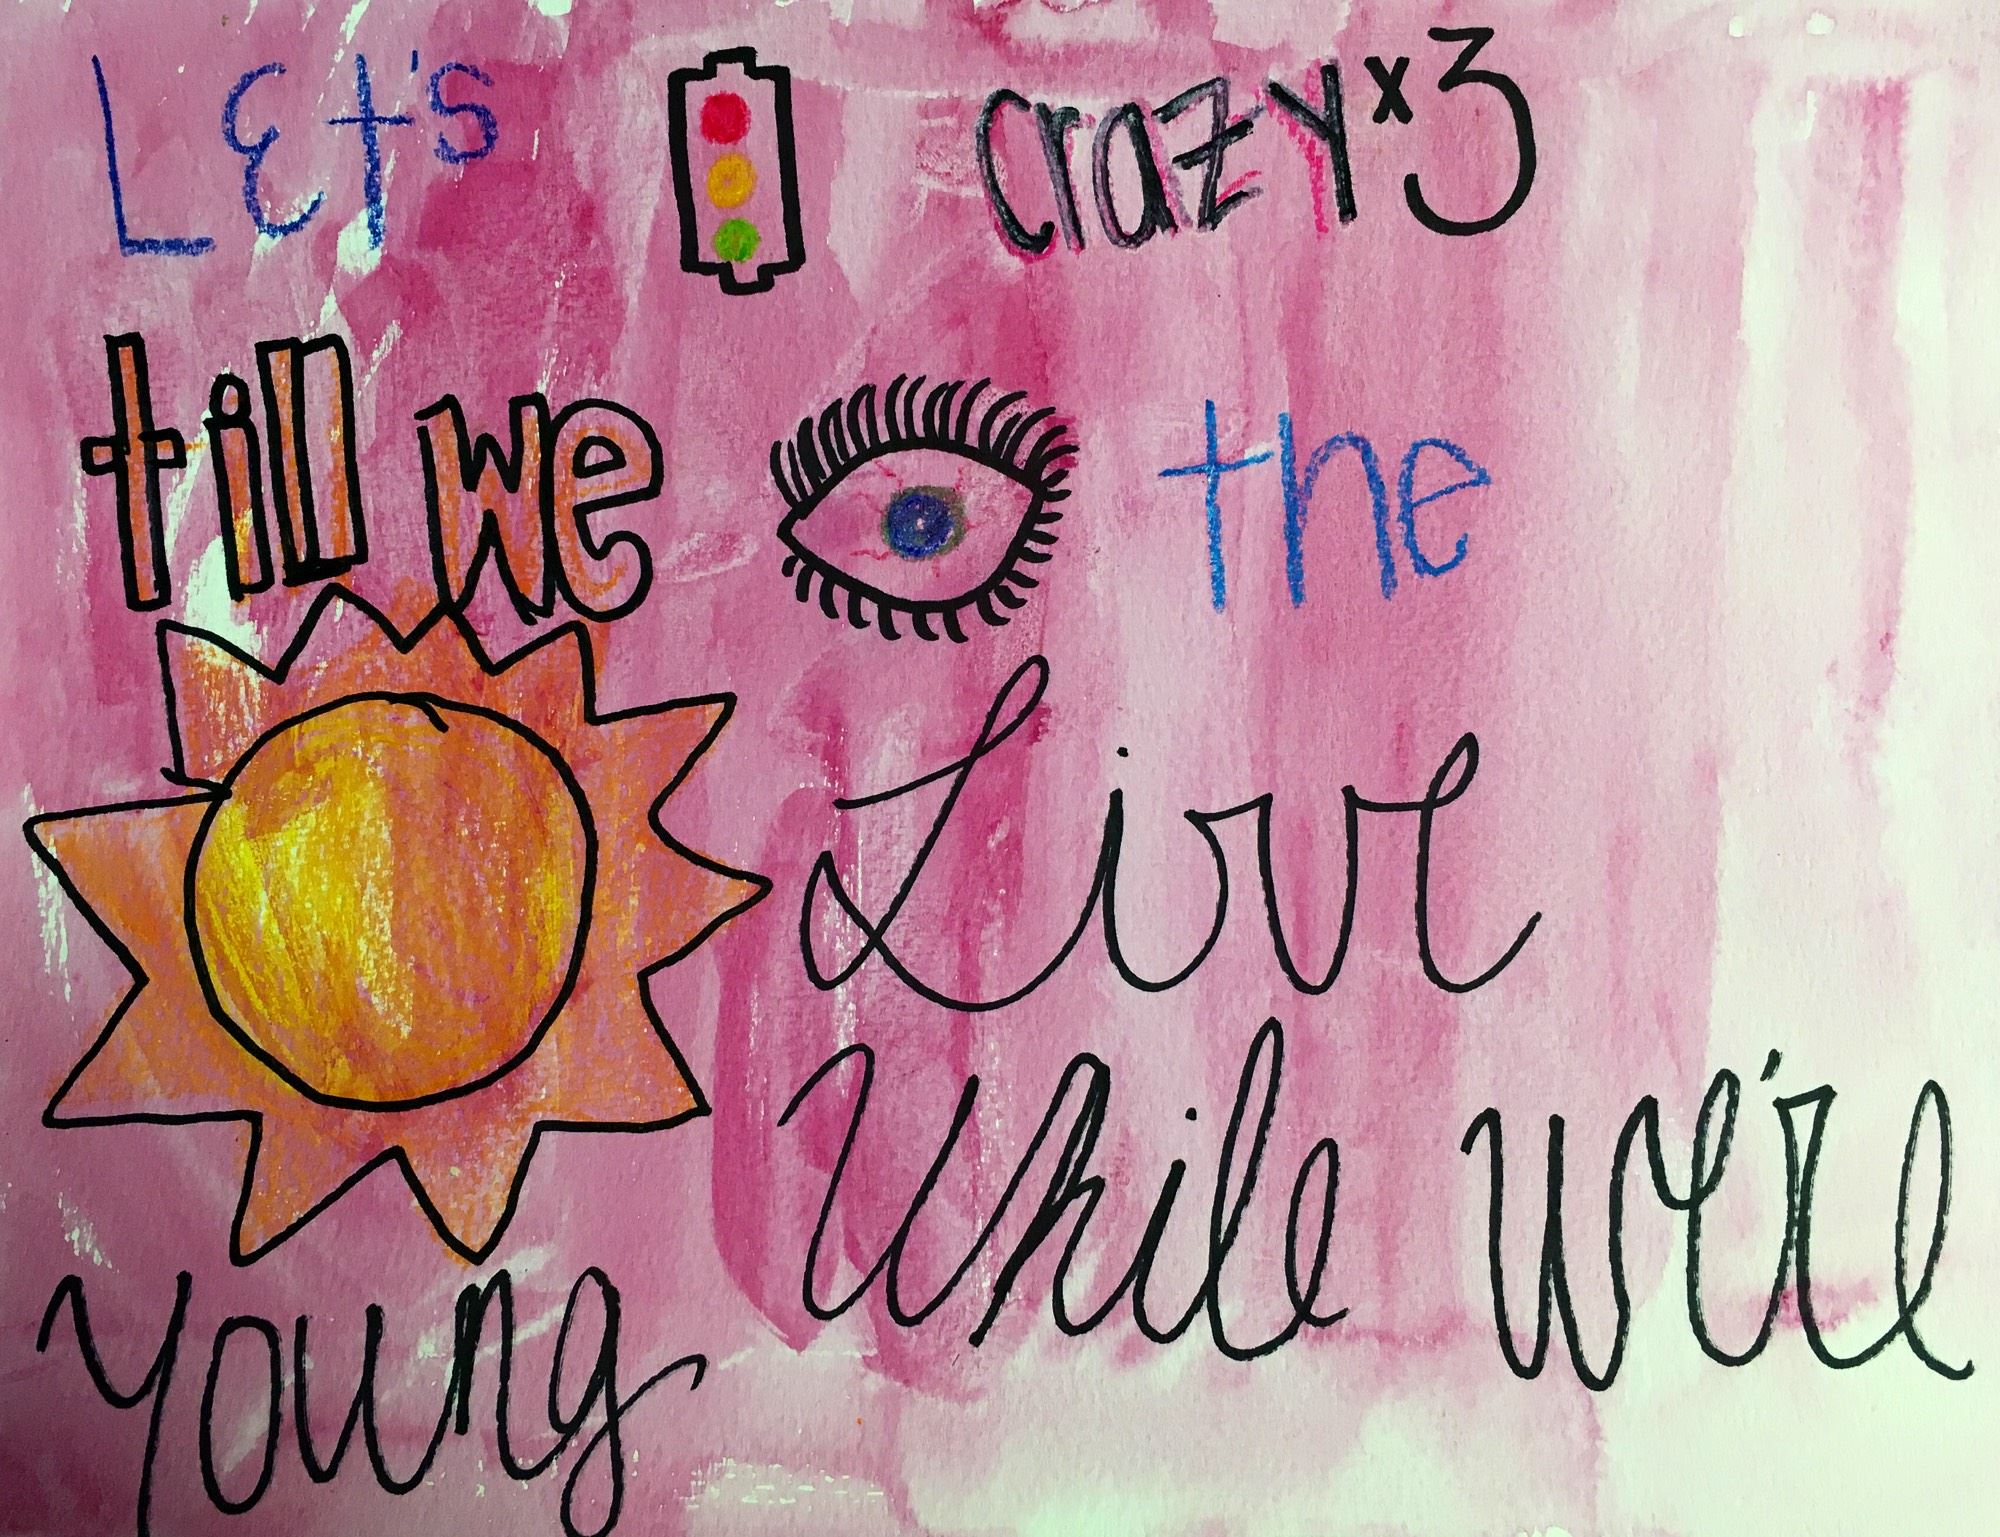 Let's crazy x3
till we the
Live
While we're
Young